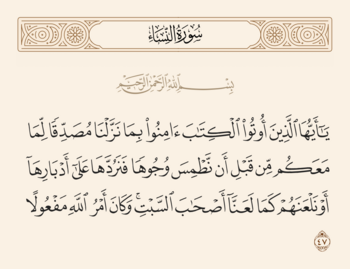 سُورَةُ النِّسَاءِ
بِسْمِ اللَّهِ الرَّحْمَٰنِ الرَّحِيمِ
يَـٰٓأَيُّهَا ٱلَّذِينَ أُوتُوا۟ ٱلْكِتَـٰبَ ءَامِنُوا۟ بِمَا نَزَّلْنَا مُصَدِّقًا لِّمَا
مَعَكُم مِّن قَبْلِ أَن نَّطْمِسَ وُجُوهًا فَنَرُدَّهَا عَلَىٰٓ أَدْبَارِهَآ
أَوْ نَلْعَنَهُمْ كَمَا لَعَنَّآ أَصْحَـٰبَ ٱلسَّبْتِ ۚ وَكَانَ أَمْرُ ٱللَّهِ مَفْعُولًا
٤٧